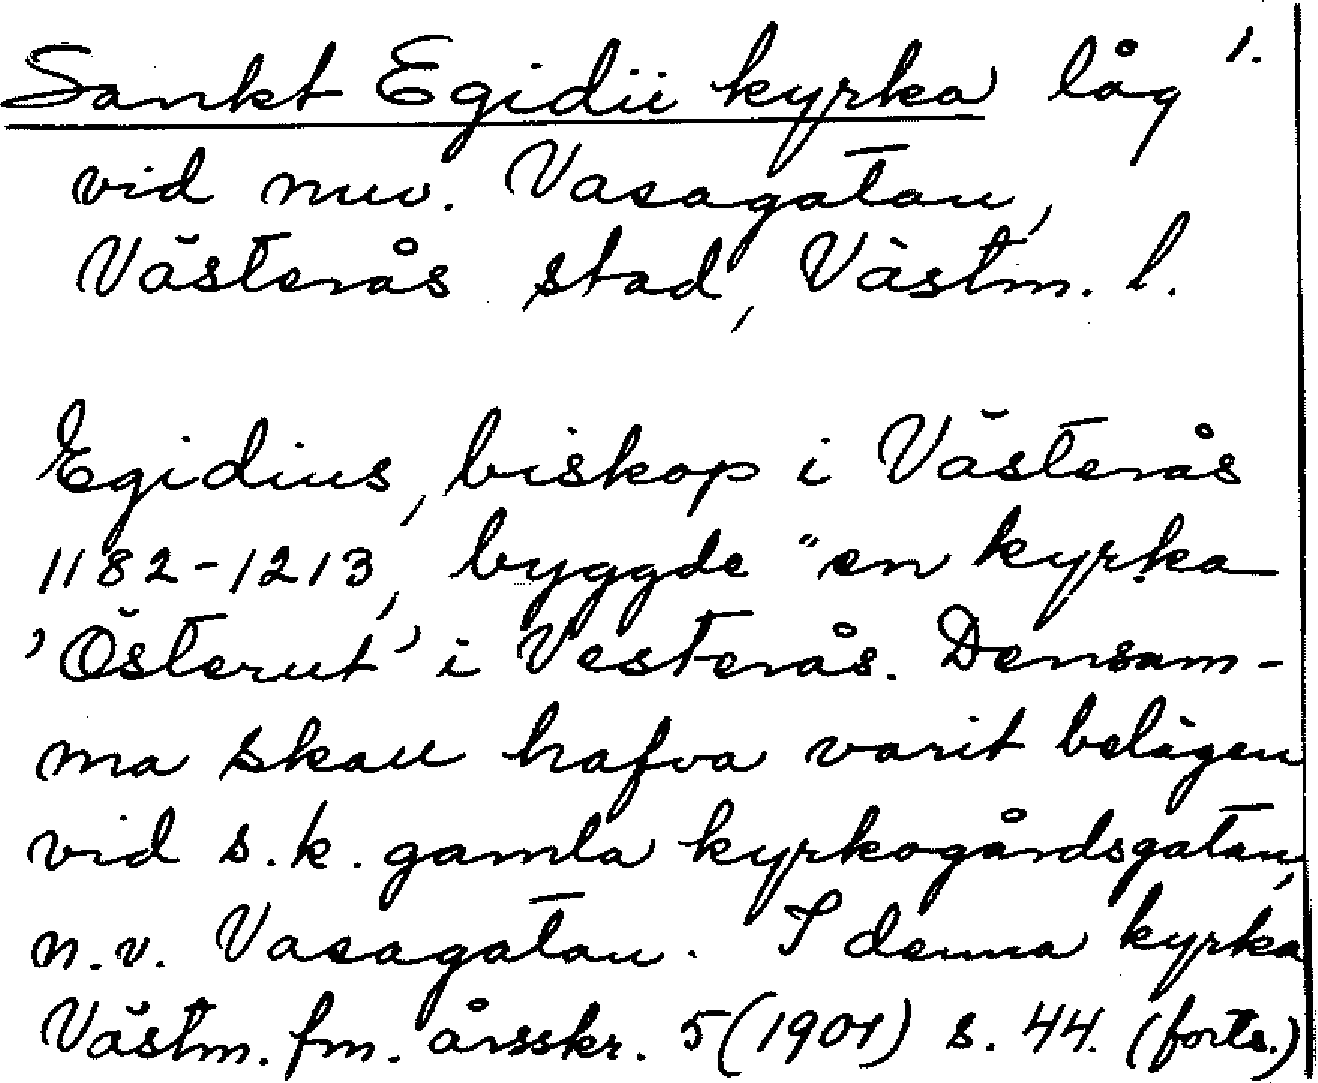 Sankt Egidii kyrka låg 1.
vid nuv. Vasagatan,
Västerås stad, Västm. l.
Egidius, biskop i Västerås
1182-1213, byggde "en kyrka
'Österut' i Vesterås. Densam-
ma skall hafva varit belägen
vid s.k. gamla kyrkogårdsgatan,
n.v. Vasagatan. I denna kyrka
Västm. fm. årsskr. 5 (1909) s. 44. (forts.)